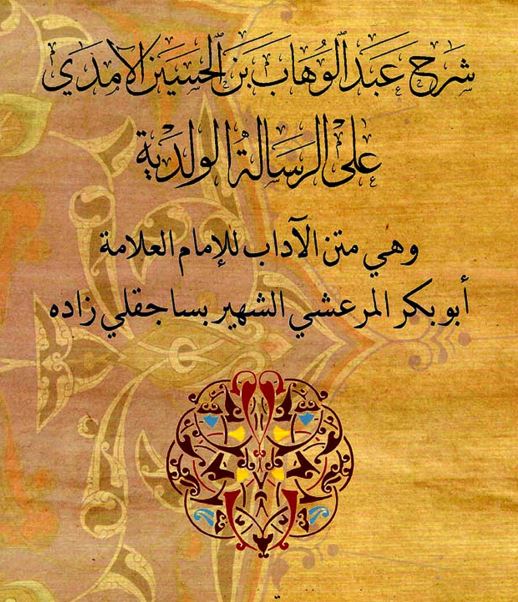 شرح عبد الوهاب بن الحسين الآمدي
على الرسالة الولدية
وهي متن الآداب للإمام العلامة
أبو بكر المرعشي الشهير بساجقلي زاده